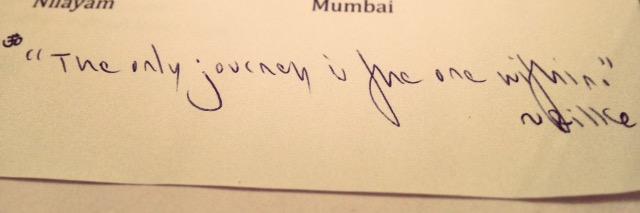 Nilayam Mumbai
ॐ
"The only journey is the one within."
~ Rilke